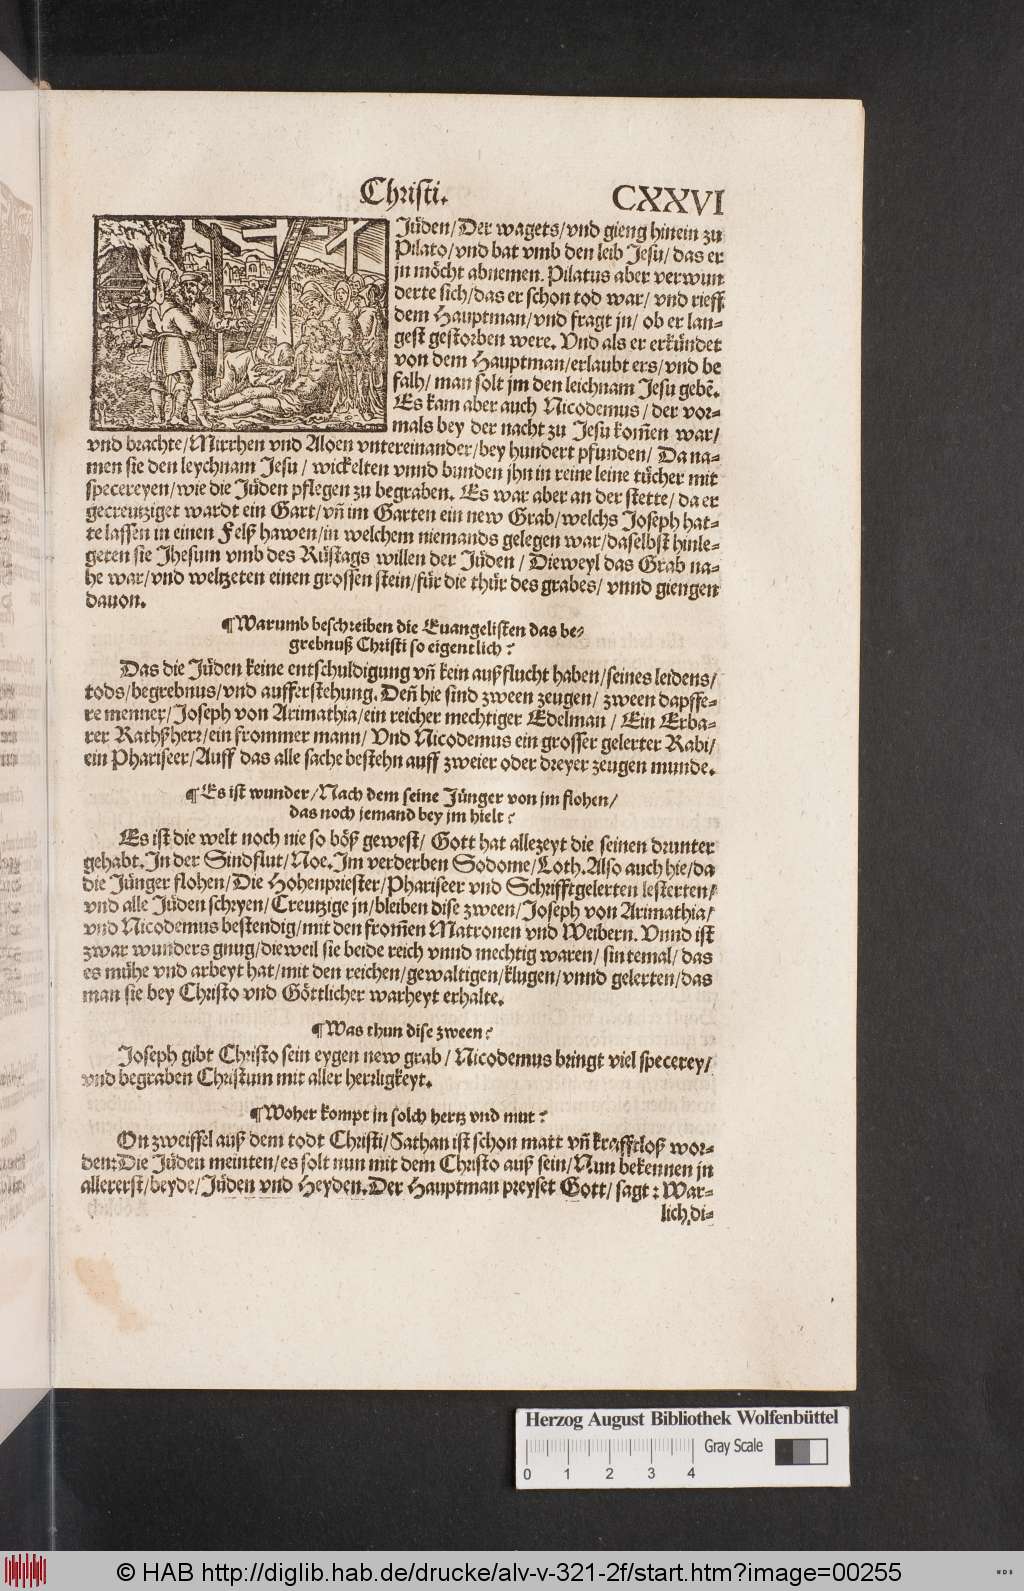 Christi.
CXXVI
Jüden/Der wagets/vnd gieng hinein zu
Pilato/vnd bat vmb den leib Jesu/das er
jn möcht abnemen. Pilatus aber verwun
derte sich/das er schon tod war/vnd rieff
dem Hauptman/vnd fragt jn/ob er lan⸗
gest gestorben were. Vnd als er erkündet
von dem Hauptman/erlaubt ers/vnd be
falh/man solt jm den leichnam Jesu gebē.
Es kam aber auch Nicodemus/der vor⸗
mals bey der nacht zu Jesu kom̄en war/
vnd brachte/Mirrhen vnd Aloen vntereinander/bey hundert pfunden/Da na⸗
men sie den leychnam Jesu/wickelten vnnd bunden jhn in reine leine tücher mit
specereyen/wie die Jüden pflegen zu begraben. Es war aber an der stette/da er
gecreutziget wardt ein Gart/vn̄ im Garten ein new Grab/welchs Joseph hat⸗
te lassen in einen Felß hawen/in welchem niemands gelegen war/daselbst hinle⸗
geten sie Jhesum vmb des Rüstags willen der Jüden/Dieweyl das Grab na⸗
he war/vnd weltzeten einen grossen stein/für die thür des grabes/vnnd giengen
dauon.
¶Warumb beschreiben die Euangelisten das be⸗
grebnuß Christi so eigentlich?
Das die Jüden keine entschuldigung vn̄ kein außflucht haben/seines leidens/
tods/begrebnus/vnd aufferstehung. Den̄ hie sind zween zeugen/zween dapffe⸗
re menner/Joseph von Arimathia/ein reicher mechtiger Edelman/Ein Erba⸗
rer Rathßherr/ein frommer mann/Vnd Nicodemus ein grosser gelerter Rabi/
ein Phariseer/Auff das alle sache bestehn auff zweier oder dreyer zeugen munde.
¶Es ist wunder/Nach dem seine Jünger von jm flohen/
das noch jemand bey jm hielt?
Es ist die welt noch nie so böß gewest/Gott hat allezeyt die seinen drunter
gehabt. In der Sindflut/Noe. Im verderben Sodome/Loth. Also auch hie/da
die Jünger flohen/Die Hohenpriester/Phariseer vnd Schrifftgelerten lesterten/
vnd alle Jüden schryen/Creutzige jn/bleiben dise zween/Joseph von Arimathia/
vnd Nicodemus bestendig/mit den from̄en Matronen vnd Weibern. Vnnd ist
zwar wunders gnug/dieweil sie beide reich vnnd mechtig waren/sintemal/das
es mühe vnd arbeyt hat/mit den reichen/gewaltigen/klugen/vnnd gelerten/das
man sie bey Christo vnd Göttlicher warheyt erhalte.
¶Was thun dise zween?
Joseph gibt Christo sein eygen new grab/Nicodemus bringt viel specerey/
vnd begraben Christum mit aller herrligkeyt.
¶Woher kompt jn solch hertz vnd mut?
On zweiffel auß dem todt Christi/Sathan ist schon matt vn̄ krafftloß wor⸗
den: Die Jüden meinten/es solt nun mit dem Christo auß sein/Nun bekennen jn
allererst/beyde/Jüden vnd Heyden. Der Hauptman preyset Gott/sagt: War⸗
lich, di⸗
Herzog August Bibliothek Wolfenbüttel
Gray Scale
0 1 2 3 4
© HAB http://diglib.hab.de/drucke/alv-v-321-2f/start.htm?image=00255